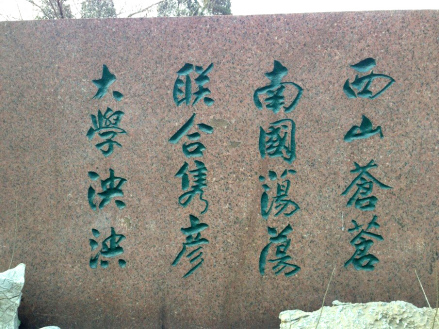 西山蒼蒼
南國蕩蕩
联合雋彦
大學泱泱